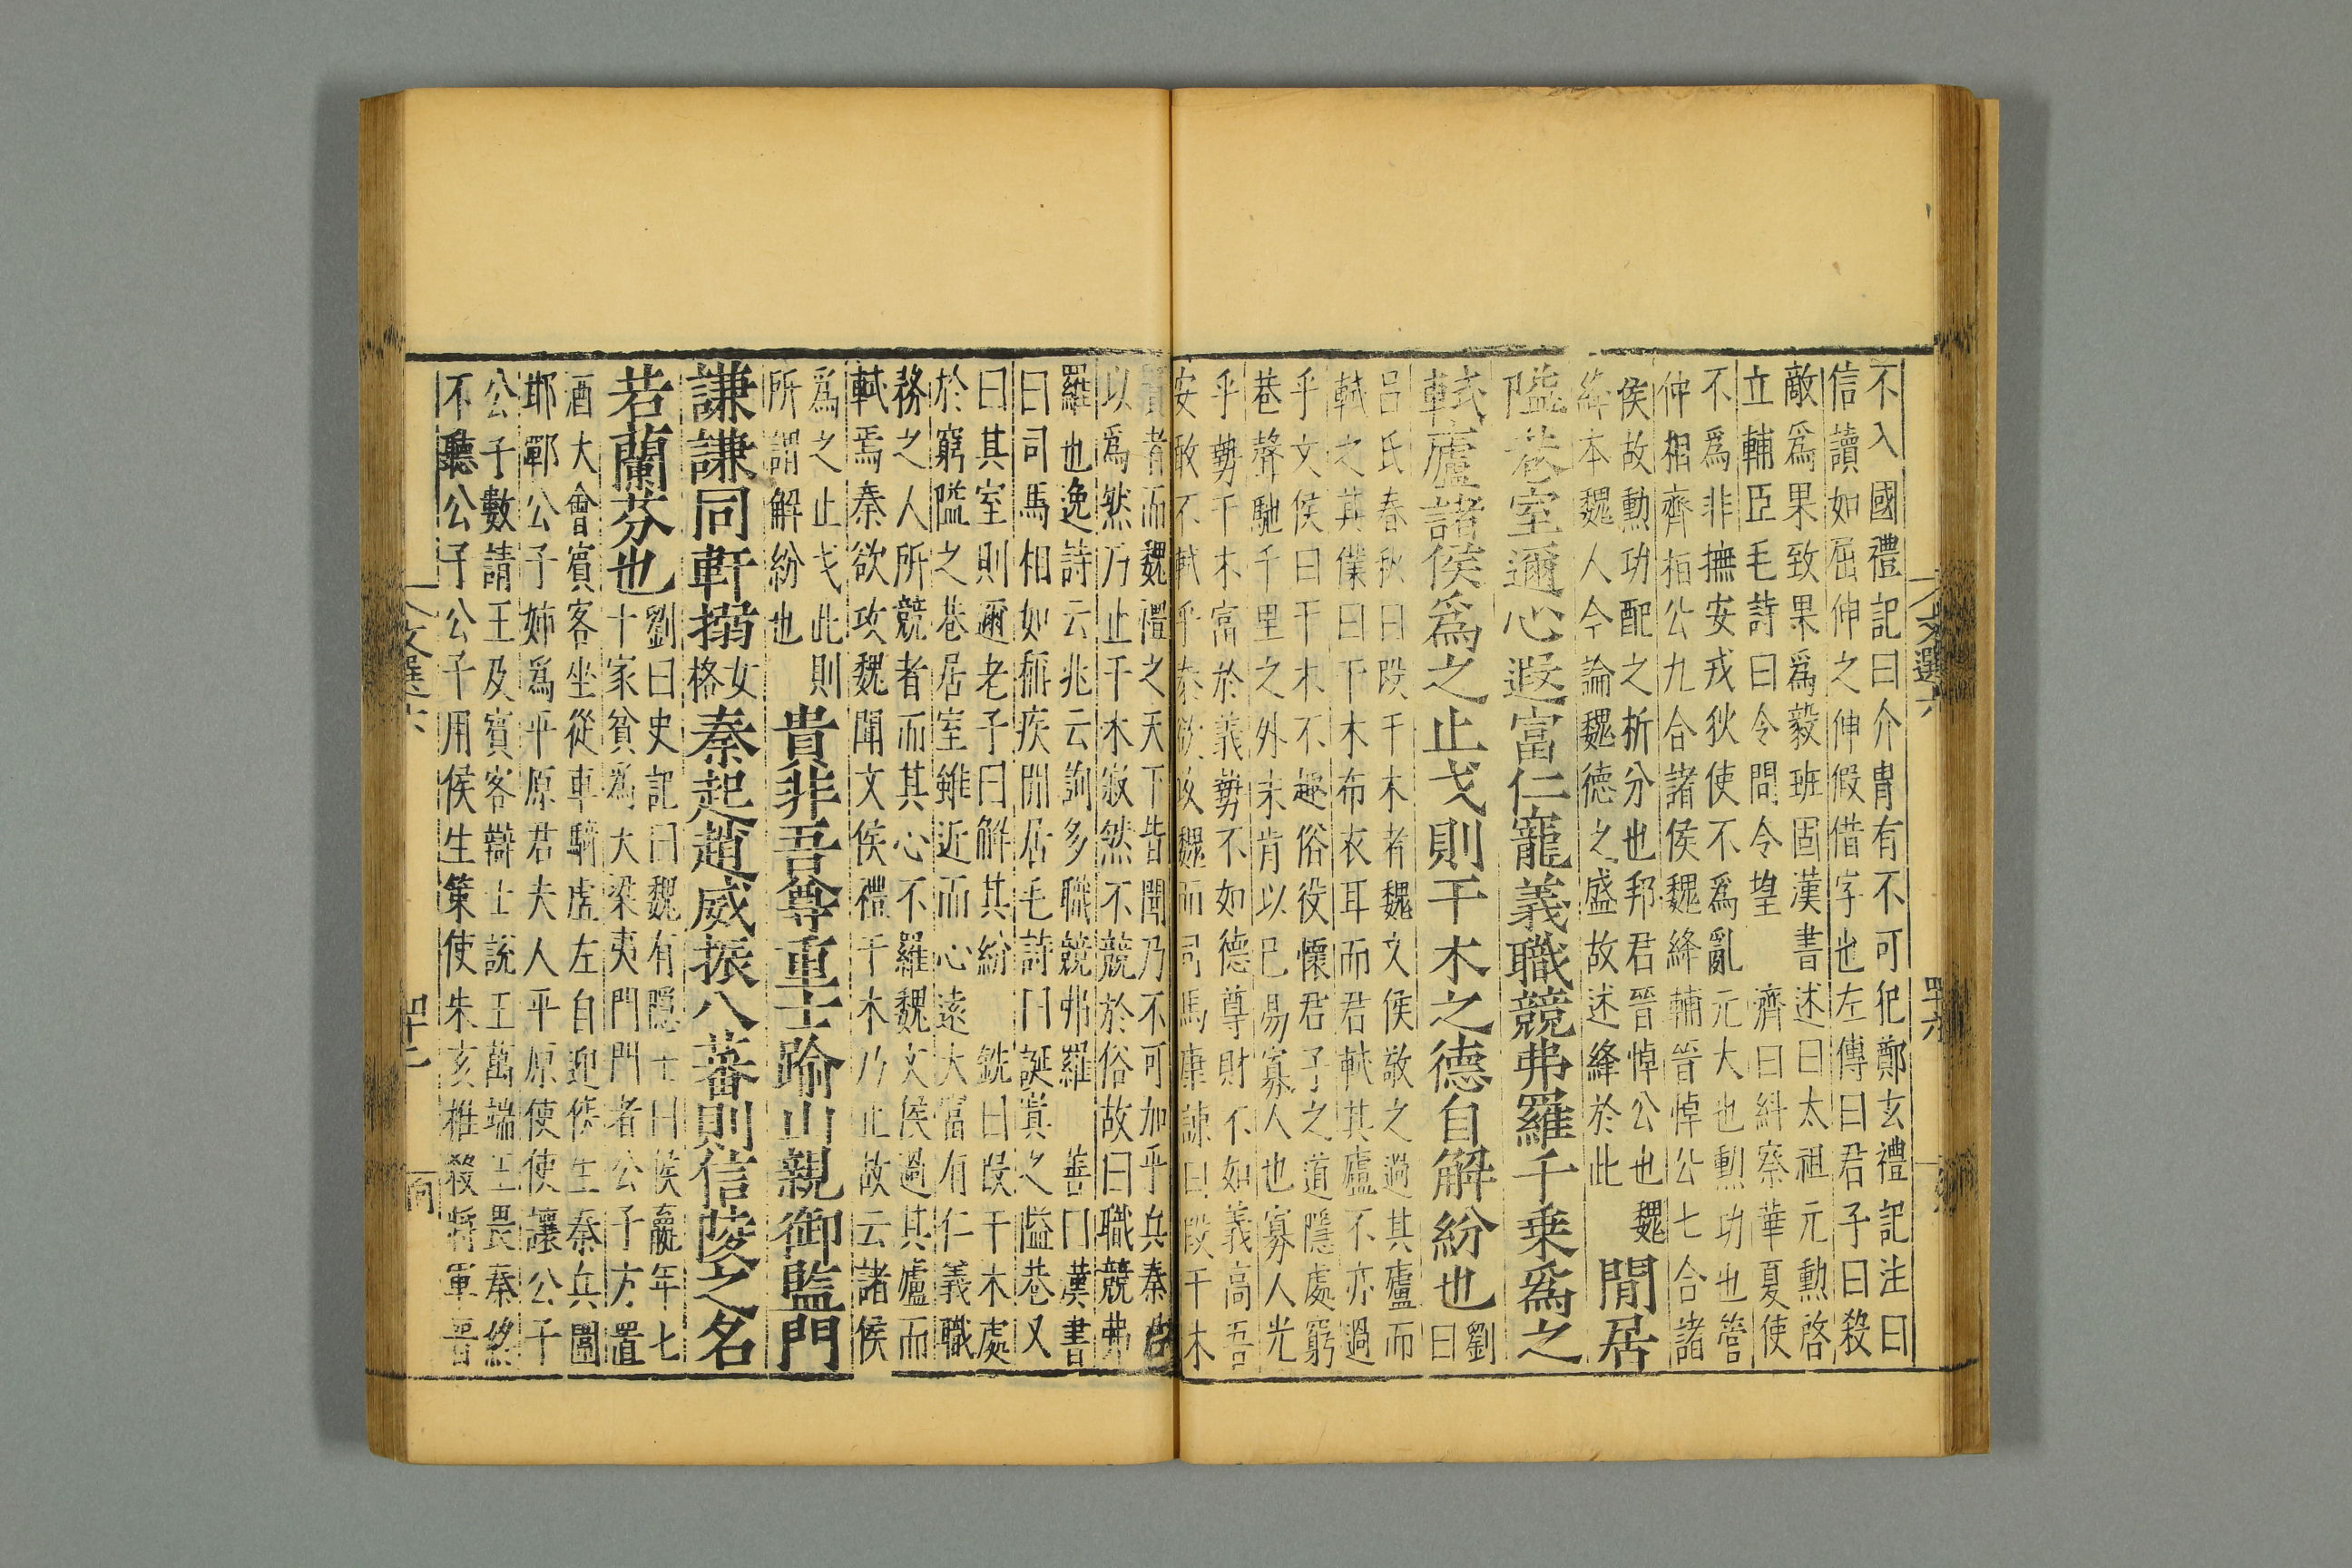 不入國禮記曰介冑有不可犯鄭玄禮記注曰
信讀如屈伸之伸假借字也左傳曰君子曰殺
敵爲果致果爲毅班固漢書述曰太祖元勳啓
立輔臣毛詩曰令問令望 齊曰糾察華夏使
不爲非撫安戎狄使不爲亂元大也勲功也管
仲相齊桓公九合諸侯魏絳輔晉悼公七合諸
侯故勲功配之析分也邦君晉悼公也 魏
絳本魏人今論魏德之盛故述絳於此
閒居
隘巷室邇心遐富仁寵義職競弗羅千乗爲之
軾廬諸侯爲之止戈則干木之德自解紛也
劉
曰
呂氏春秋曰段干木者魏文侯敬之過其廬而
軾之其僕曰干木布衣耳而君軾其廬不亦過
乎文侯曰干木不趣俗役懷君子之道隱處窮
巷聲馳千里之外未肯以已易寡人也寡人光
乎勢干木富於義勢不如德尊財不如義高吾
安敢不軾乎秦欲攻魏而司馬康諫曰段干木
賢者而魏禮之天下皆聞乃不可加乎兵秦
以爲然乃止干木寂然不競於俗故曰職競弗
羅也逸詩云兆云詢多職競弗羅 善曰漢書
曰司馬相如稱疾閒居毛詩曰誕寘之隘巷又
曰其室則邇老子曰解其紛 銑曰段干木處
於窮隘之巷居室雖近而心遠大富有仁義職
務之人所競者而其心不羅魏文侯過其廬而
軾焉秦欲攻魏聞文侯禮干木乃止故云諸侯
爲之止戈此則
所謂解紛也
貴非吾尊重士踰山親御監門
謙謙同軒搦
女
格
秦起趙威振八蕃則信陵之名
若蘭芬也
劉曰史記曰魏有隱士曰侯嬴年七
十家貧爲大梁夷門門者公子方置
酒大會賓客坐從車騎虛左自迎侯生秦兵圍
邯鄲公子姊爲平原君夫人平原使使讓公子
公子數請王及賓客辯士說王萬端王畏秦終
不聽公子公子用侯生策使朱亥椎殺將軍晉
文選六